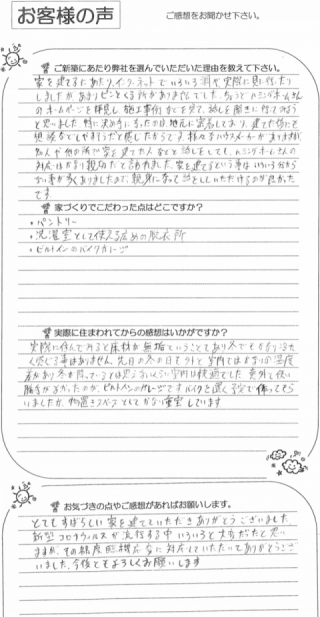 お客様の声
ご感想をお聞かせ下さい。
ご新築にあたり弊社を選んでいただいた理由を教えて下さい。
家を建てるにあたり、インターネットでいろいろ調べ実際に見に行ったり
しましたが、あまりピンとくる所がありませんでした。ちょうどハミングホームさん
のホームページを拝見し、施工事例などを見て、話しを聞きに行ってみよう
と思いました。特に決め手になったのは地元に密着しており、建てた後にも
相談などしやすそうだと感じたからです。様々なハウスメーカーがありますが
知人や他の所で家を建てた人などと話しをしても、ハミングホームさんの
対応はかなり親切だと言われました。家を建てるという事はいろいろ分から
ない事が多くありましたまで、親身になって話をしていただけるのが良かった
です
家づくりでこだわった点はどこですか？
・パントリー
・洗濯室として使える広めの脱衣所
・ビルトインのバイクガレージ
実際に住まわれてからの感想はいかがですか？
実際に住んでみると床材が無垢ということもあり冬でもかなり冷た
く感じる事はありません。先日の冬の日でも外と室内ではかなりの温度
差があり冬を待っているとは思えないくらい室内は快適でした。意外と使い
勝手が良かったのが、ビルトインのガレージです。バイクを置く予定で作ってもら
いましたが、物置きスペースとしてかなり重宝しています
お気づきの点やご感想があればお願いします。
とてもすばらしい家を建てていただきありがとうございました。
新型コロナウィルスが流行する中いろいろと大変だったと思い
ますが、その都度臨機応変に対応していただいてありがとうござ
いました。今後ともよろしくお願いします